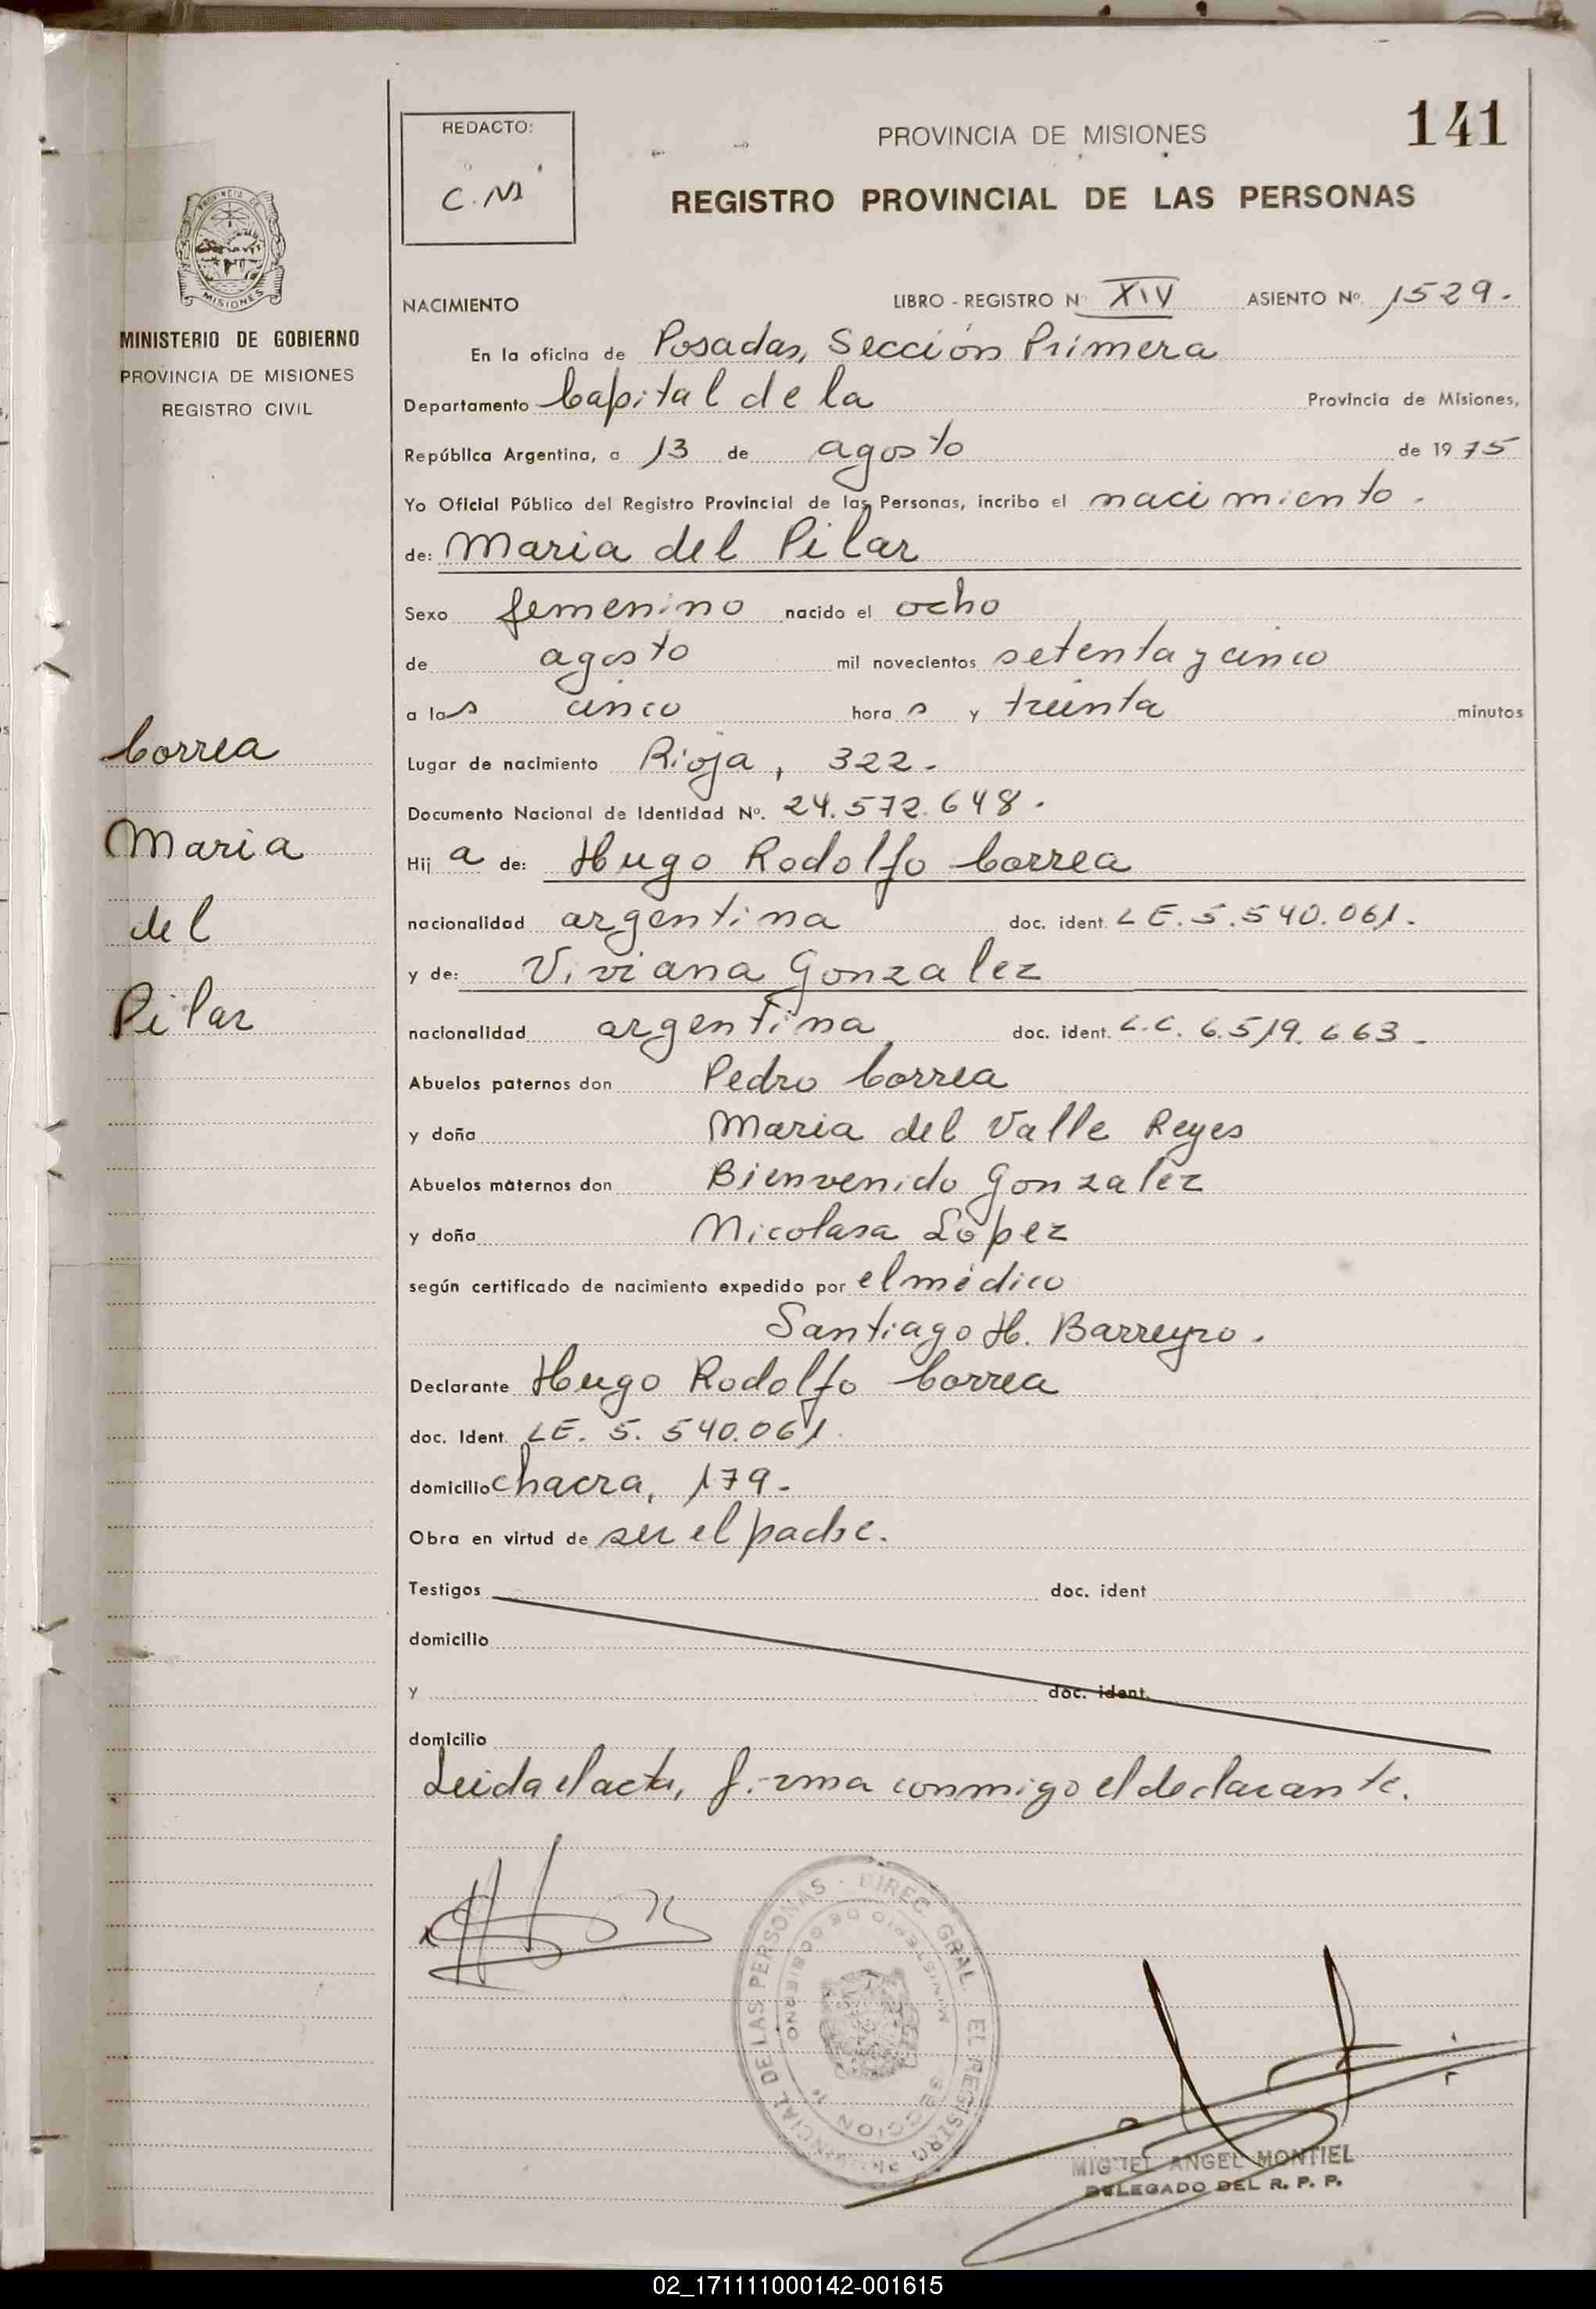 141
REDACTO:
C.M
PROVINCIA DE MISIONES
REGISTRO PROVINCIAL DE LAS PERSONAS
PROVINCIA DE
MISIONES
MINISTERIO DE GOBIERNO
PROVINCIA DE MISIONES
REGISTRO CIVIL
NACIMIENTO LIBRO - REGISTRO Nº XIV ASIENTO Nº. 1529.
En la oficina de Posadas, Sección Primera
Departamento Capital de la Provincia de Misiones,
República Argentina, a 13 de agosto de 1975
Yo Oficial Público del Registro Provincial de las Personas, incribo el nacimiento.
de: Maria del Pilar
Sexo femenino nacido el ocho
de agosto mil novecientos setenta y cinco
a las cinco horas y treinta minutos
Lugar de nacimiento Rioja, 322.
Documento Nacional de Identidad Nº. 24.572.648.
Hija de: Hugo Rodolfo Correa
nacionalidad argentina doc. ident. LE. 5.540.061.
y de: Viviana Gonzalez
nacionalidad argentina doc. ident. L.C. 6.519.663.
Abuelos paternos don Pedro Correa
y doña Maria del Valle Reyes
Abuelos maternos don Bienvenido Gonzalez
y doña Nicolasa Lopez
según certificado de nacimiento expedido por el médico
Santiago H. Barreyro.
Declarante Hugo Rodolfo Correa
doc. Ident. LE. 5.540.061.
domicilio chacra, 179.
Obra en virtud de ser el padre.
Testigos doc. ident
domicilio
y doc. ident.
domicilio
Leida el acta, firma conmigo el declarante.
Correa
Maria
del
Pilar
DIREC. GRAL. EL REGISTRO PROVINCIAL DE LAS PERSONAS -
MINISTERIO DE GOBIERNO
SECCION 1ª
MIGUEL ANGEL MONTIEL
DELEGADO DEL R. P. P.
02_171111000142-001615